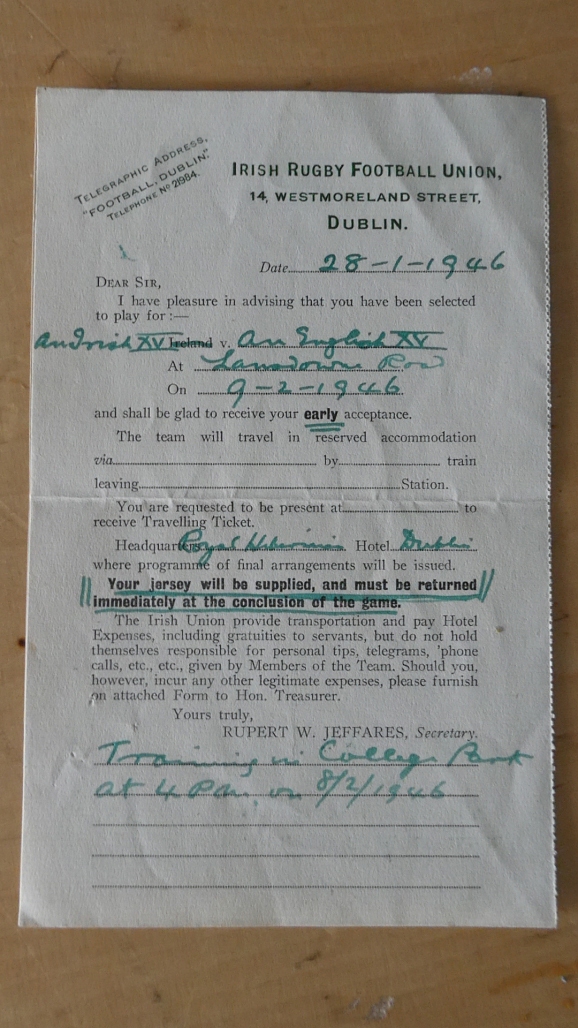 TELEGRAPHIC ADDRESS,
"FOOTBALL, DUBLIN."
TELEPHONE Nº 21984.
IRISH RUGBY FOOTBALL UNION,
14, WESTMORELAND STREET,
DUBLIN.
Date 28-1-1946
DEAR SIR,
I have pleasure in advising that you have been selected
to play for :—
An Irish XV Ireland v. An English XV
At Lansdowne Road
On 9-2-1946
and shall be glad to receive your early acceptance.
The team will travel in reserved accommodation
via by train
leaving Station.
You are requested to be present at to
receive Travelling Ticket.
Headquarters Royal Hibernian Hotel Dublin
where programme of final arrangements will be issued.
Your jersey will be supplied, and must be returned
immediately at the conclusion of the game.
The Irish Union provide transportation and pay Hotel
Expenses, including gratuities to servants, but do not hold
themselves responsible for personal tips, telegrams, 'phone
calls, etc., etc., given by Members of the Team. Should you,
however, incur any other legitimate expenses, please furnish
on attached Form to Hon. Treasurer.
Yours truly,
RUPERT W. JEFFARES, Secretary.
Training in College Park
at 4 P.m. on 8/2/1946